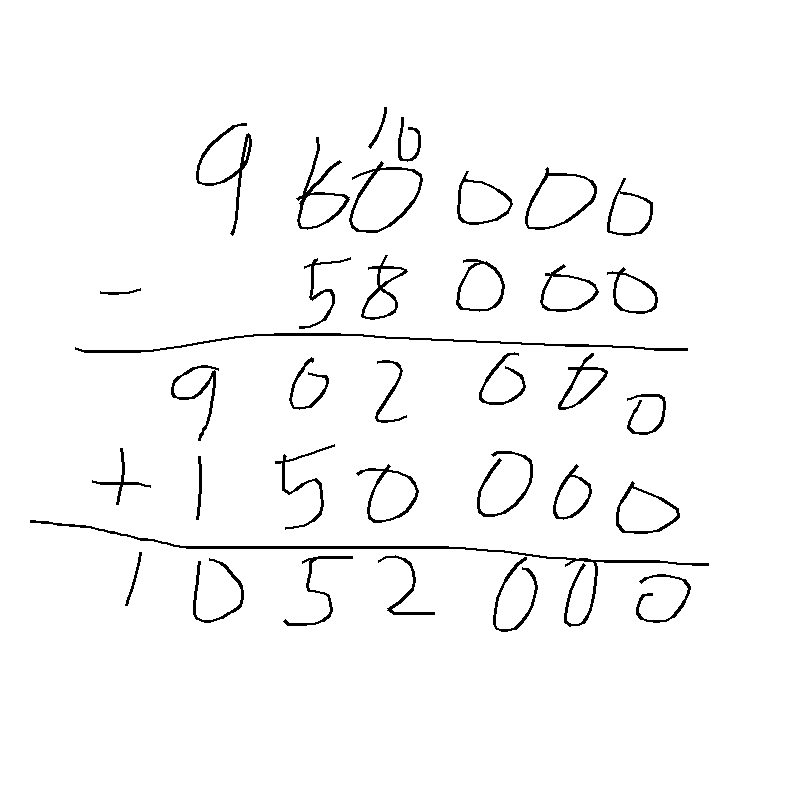 10
960000
- 58000
902000
+150000
1052000